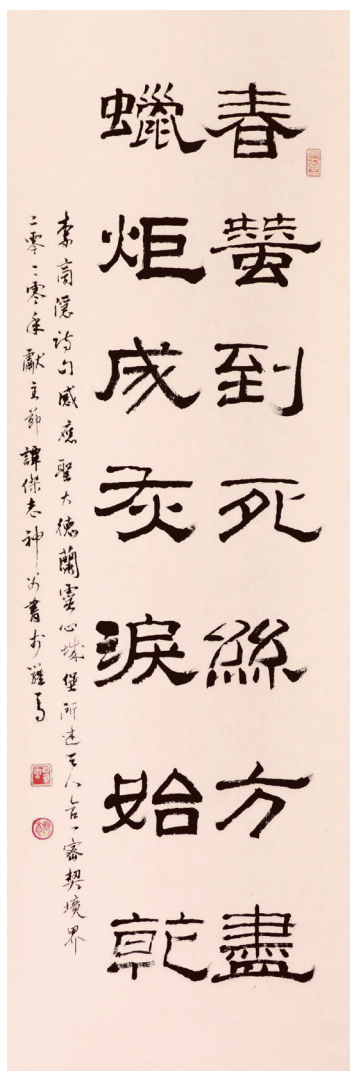 春蠶到死絲方盡
蠟炬成灰淚始乾
李商隱詩句感應聖大德蘭靈心城堡所述天人合一密契境界
二零二零年獻主節譚傑志神父書於羅馬